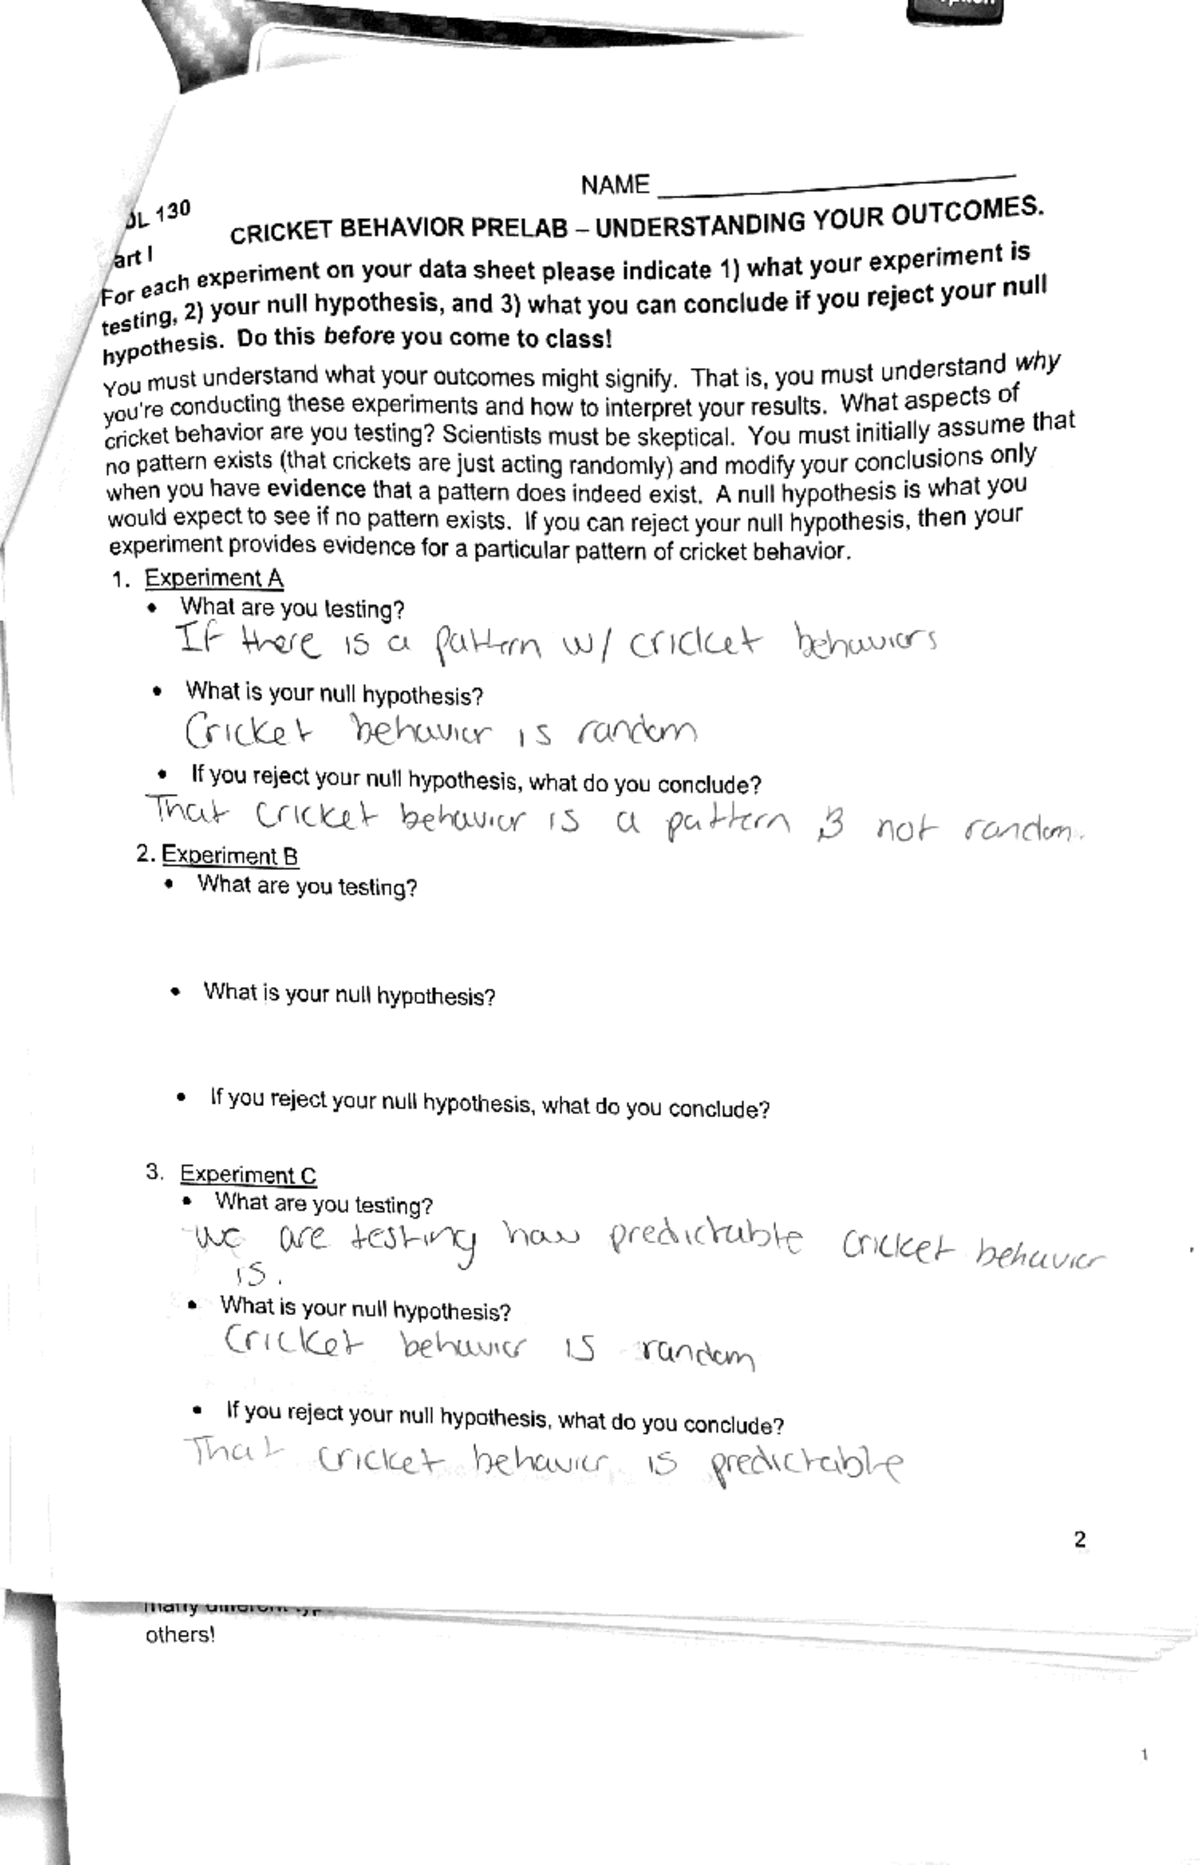 NAME
OL 130
CRICKET BEHAVIOR PRELAB – UNDERSTANDING YOUR OUTCOMES.
art I
For each experiment on your data sheet please indicate 1) what your experiment is
testing, 2) your null hypothesis, and 3) what you can conclude if you reject your null
hypothesis. Do this before you come to class!
You must understand what your outcomes might signify. That is, you must understand why
you're conducting these experiments and how to interpret your results. What aspects of
cricket behavior are you testing? Scientists must be skeptical. You must initially assume that
no pattern exists (that crickets are just acting randomly) and modify your conclusions only
when you have evidence that a pattern does indeed exist. A null hypothesis is what you
would expect to see if no pattern exists. If you can reject your null hypothesis, then your
experiment provides evidence for a particular pattern of cricket behavior.
1. Experiment A
• What are you testing?
If there is a pattern w/ cricket behaviors
• What is your null hypothesis?
Cricket behavior is random
• If you reject your null hypothesis, what do you conclude?
That cricket behavior is a pattern & not random.
2. Experiment B
• What are you testing?
• What is your null hypothesis?
• If you reject your null hypothesis, what do you conclude?
3. Experiment C
• What are you testing?
We are testing how predictable cricket behavior
is.
• What is your null hypothesis?
Cricket behavior is random
• If you reject your null hypothesis, what do you conclude?
That cricket behavior is predictable
2
many different
others!
1